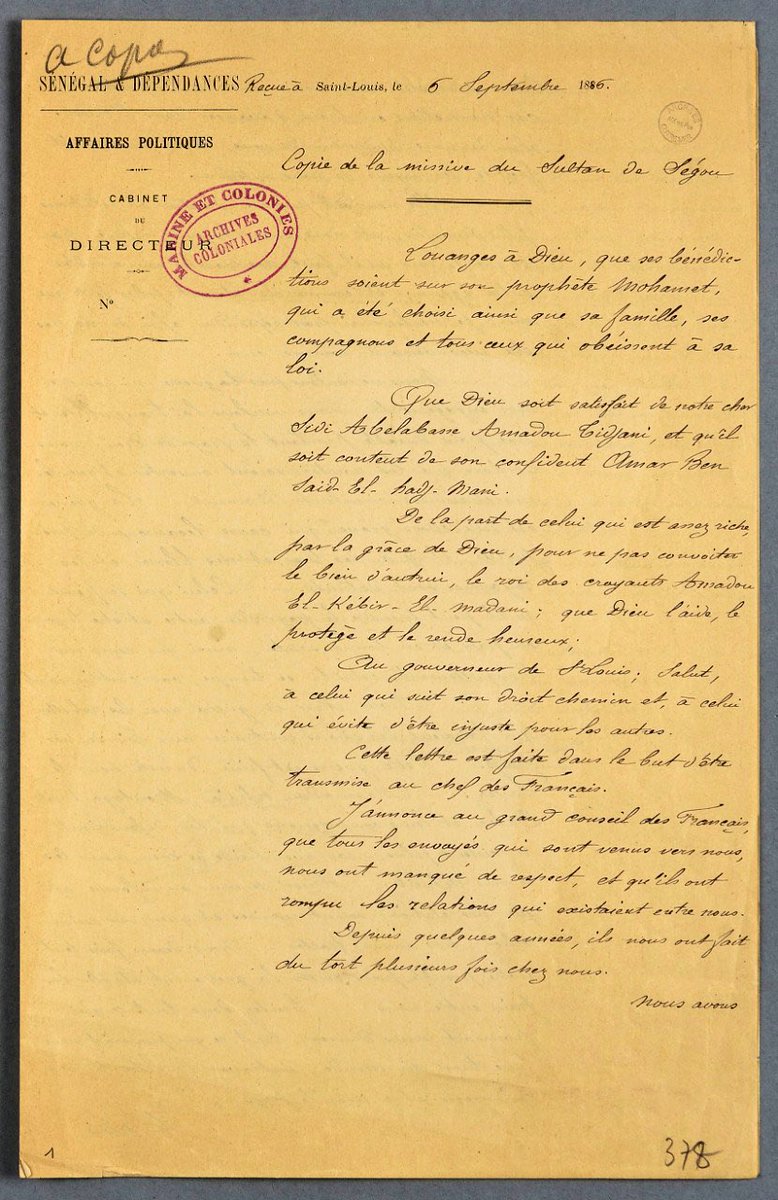 a copier
SÉNÉGAL & DÉPENDANCES Reçue à Saint-Louis, le 6 Septembre 1886.
AFFAIRES POLITIQUES
CABINET
DU
DIRECTEUR
N°
MARINE ET COLONIES
ARCHIVES
COLONIALES
Copie de la missive du Sultan de Ségou
Louanges à Dieu, que ses bénédic-
tions soient sur son prophète Mohamet,
qui a été choisi ainsi que sa famille, ses
compagnons et tous ceux qui obéissent à sa
loi.
Que Dieu soit satisfait de notre cher
Sidi Abelabasse Amadou Tidjani, et qu'il
soit content de son confident Amar Ben
Said-El-hadj-Mani.
De la part de celui qui est assez riche,
par la grâce de Dieu, pour ne pas convoiter
le bien d'autrui, le roi des croyants Amadou
El-Kébir-El-madani; que Dieu l'aide, le
protège et le rende heureux;
Au gouverneur de St Louis; Salut,
à celui qui suit son droit chemin et, à celui
qui évite d'être injuste pour les autres.
Cette lettre est faite dans le but d'être
transmise au chef des Français.
J'annonce au grand conseil des Français,
que tous les envoyés qui sont venus vers nous,
nous ont manqué de respect, et qu'ils ont
rompu les relations qui existaient entre nous.
Depuis quelques années, ils nous ont fait
du tort plusieurs fois chez nous.
nous avons
1
378